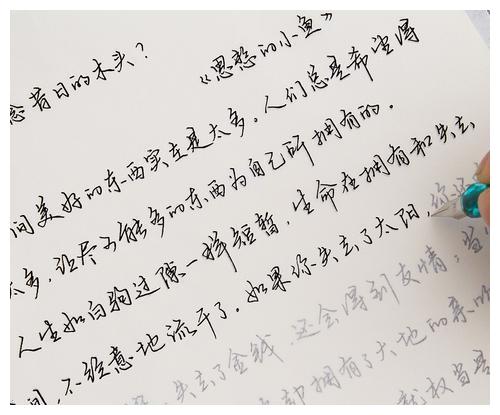 念昔日的木头?
《思愁的小鱼》
间美好的东西实在是太多,人们总是希望得
太多,让尽可能多的东西为自己所拥有的.
人生如白驹过隙一样短暂,生命在拥有和失去
间,不经意地流干了.如果你失去了太阳,你还
失去了金钱,还会得到友情;当
却拥有了大地的亲